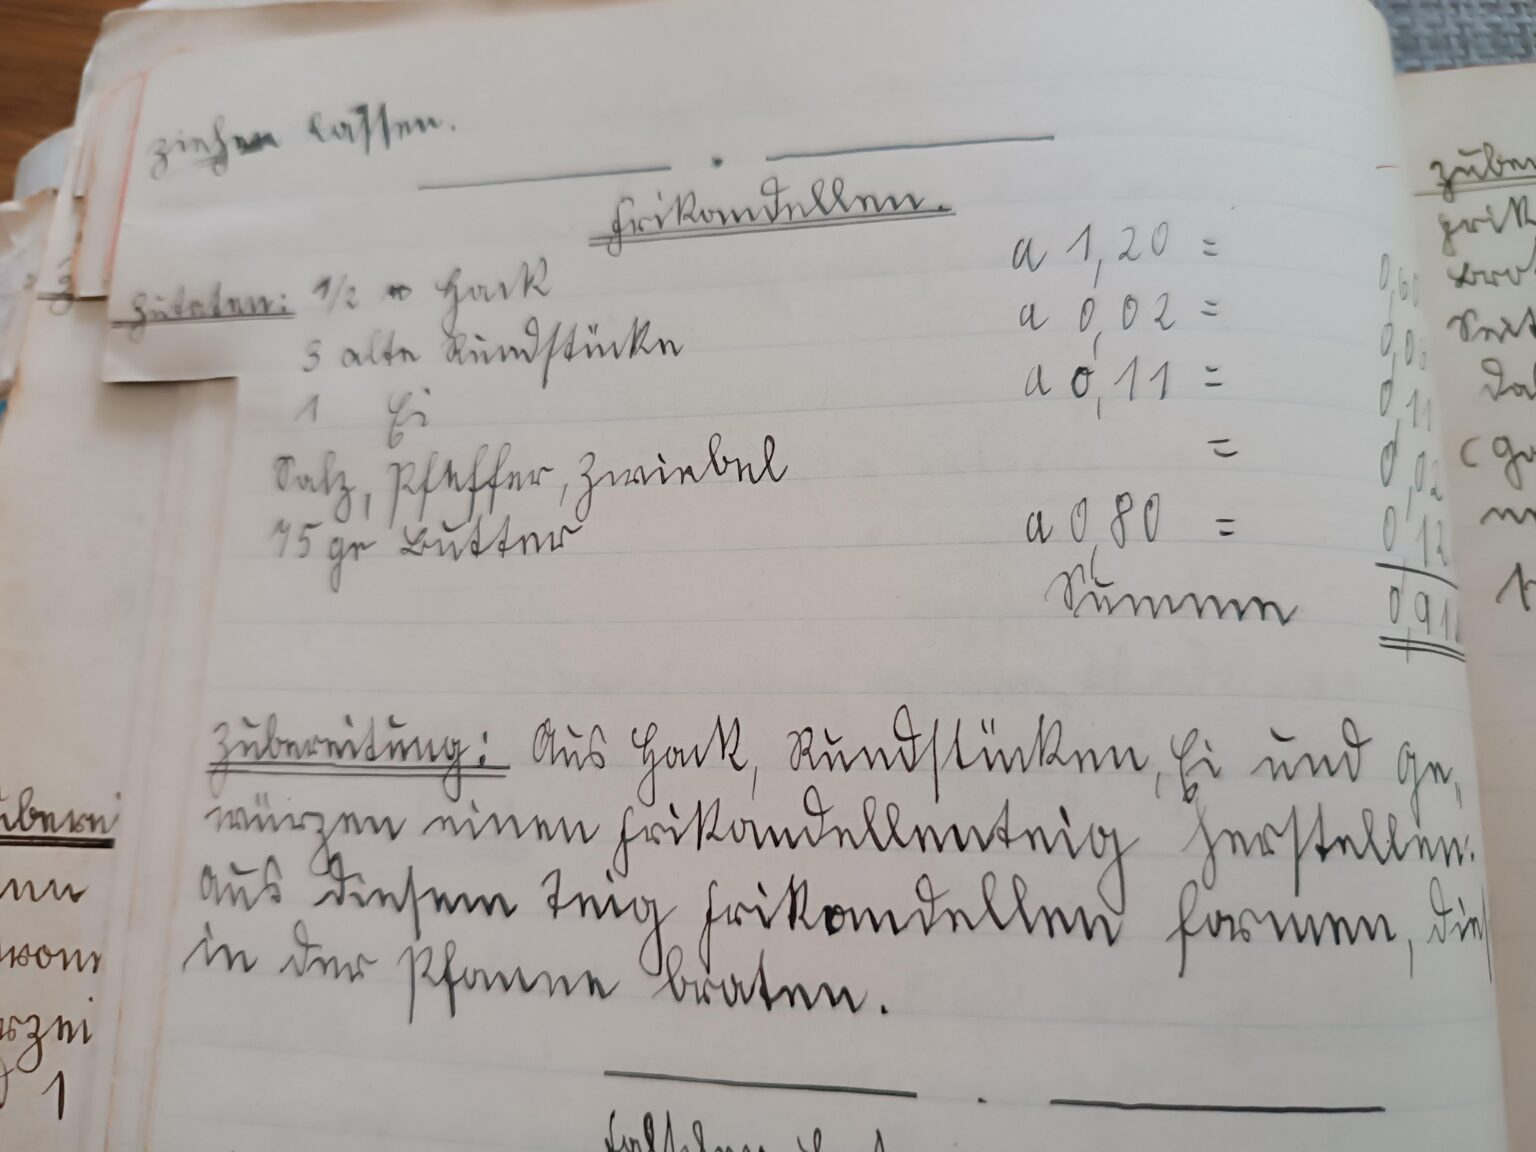 ziehen lassen.
Frikandellen.
Zutaten: 1/2 Hack a 1,20 = 0,60
3 alte Rundstücke a 0,02 = 0,06
1 Ei a 0,11 = 0,11
Salz, Pfeffer, Zwiebel = 0,02
75 gr Butter a 0,80 = 0,12
Summe 0,91
Zubereitung: Aus Hack, Rundstücken, Ei und Ge,
würzen einen Frikandellenteig herstellen.
Aus diesem Teig Frikandellen formen, dies
in der Pfanne braten.